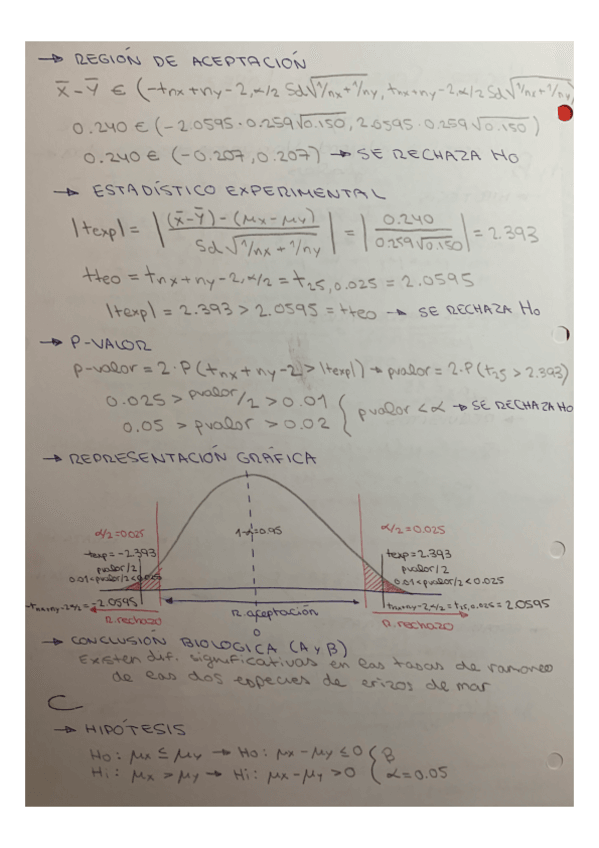 → REGIÓN DE ACEPTACIÓN
X̄ - Ȳ ∈ (-tnx+ny-2,α/2 Sd√1/nx+1/ny, tnx+ny-2,α/2 Sd√1/nx+1/ny)
0.240 ∈ (-2.0595·0.259√0.150, 2.0595·0.259√0.150)
0.240 ∈ (-0.207, 0.207) → SE RECHAZA Ho
→ ESTADÍSTICO EXPERIMENTAL
|texp| = |(X̄-Ȳ)-(μx-μy) / Sd√1/nx+1/ny| = |0.240 / 0.259√0.150| = 2.393
tteo = tnx+ny-2,α/2 = t25,0.025 = 2.0595
|texp| = 2.393 > 2.0595 = tteo → SE RECHAZA Ho
→ P-VALOR
p-valor = 2·P(tnx+ny-2 > |texp|) → pvalor = 2·P(t25 > 2.393)
0.025 > pvalor/2 > 0.01 { pvalor < α → SE RECHAZA Ho
0.05 > pvalor > 0.02
→ REPRESENTACIÓN GRÁFICA
α/2=0.025
1-α=0.95
α/2=0.025
texp=-2.393
pvalor/2
0.01<pvalor/2<0.025
texp=2.393
pvalor/2
0.01<pvalor/2<0.025
-tnx+ny-2,α/2=-2.0595
R.rechazo
R.aceptación
0
tnx+ny-2,α/2=t25,0.025=2.0595
R.rechazo
→ CONCLUSIÓN BIOLOGICA (A y B)
Existen dif. significativas en las tasas de ramoneo
de las dos especies de erizos de mar
C
→ HIPÓTESIS
Ho: μx ≤ μy → Ho: μx - μy ≤ 0 { B
Hi: μx > μy → Hi: μx - μy > 0 { α=0.05